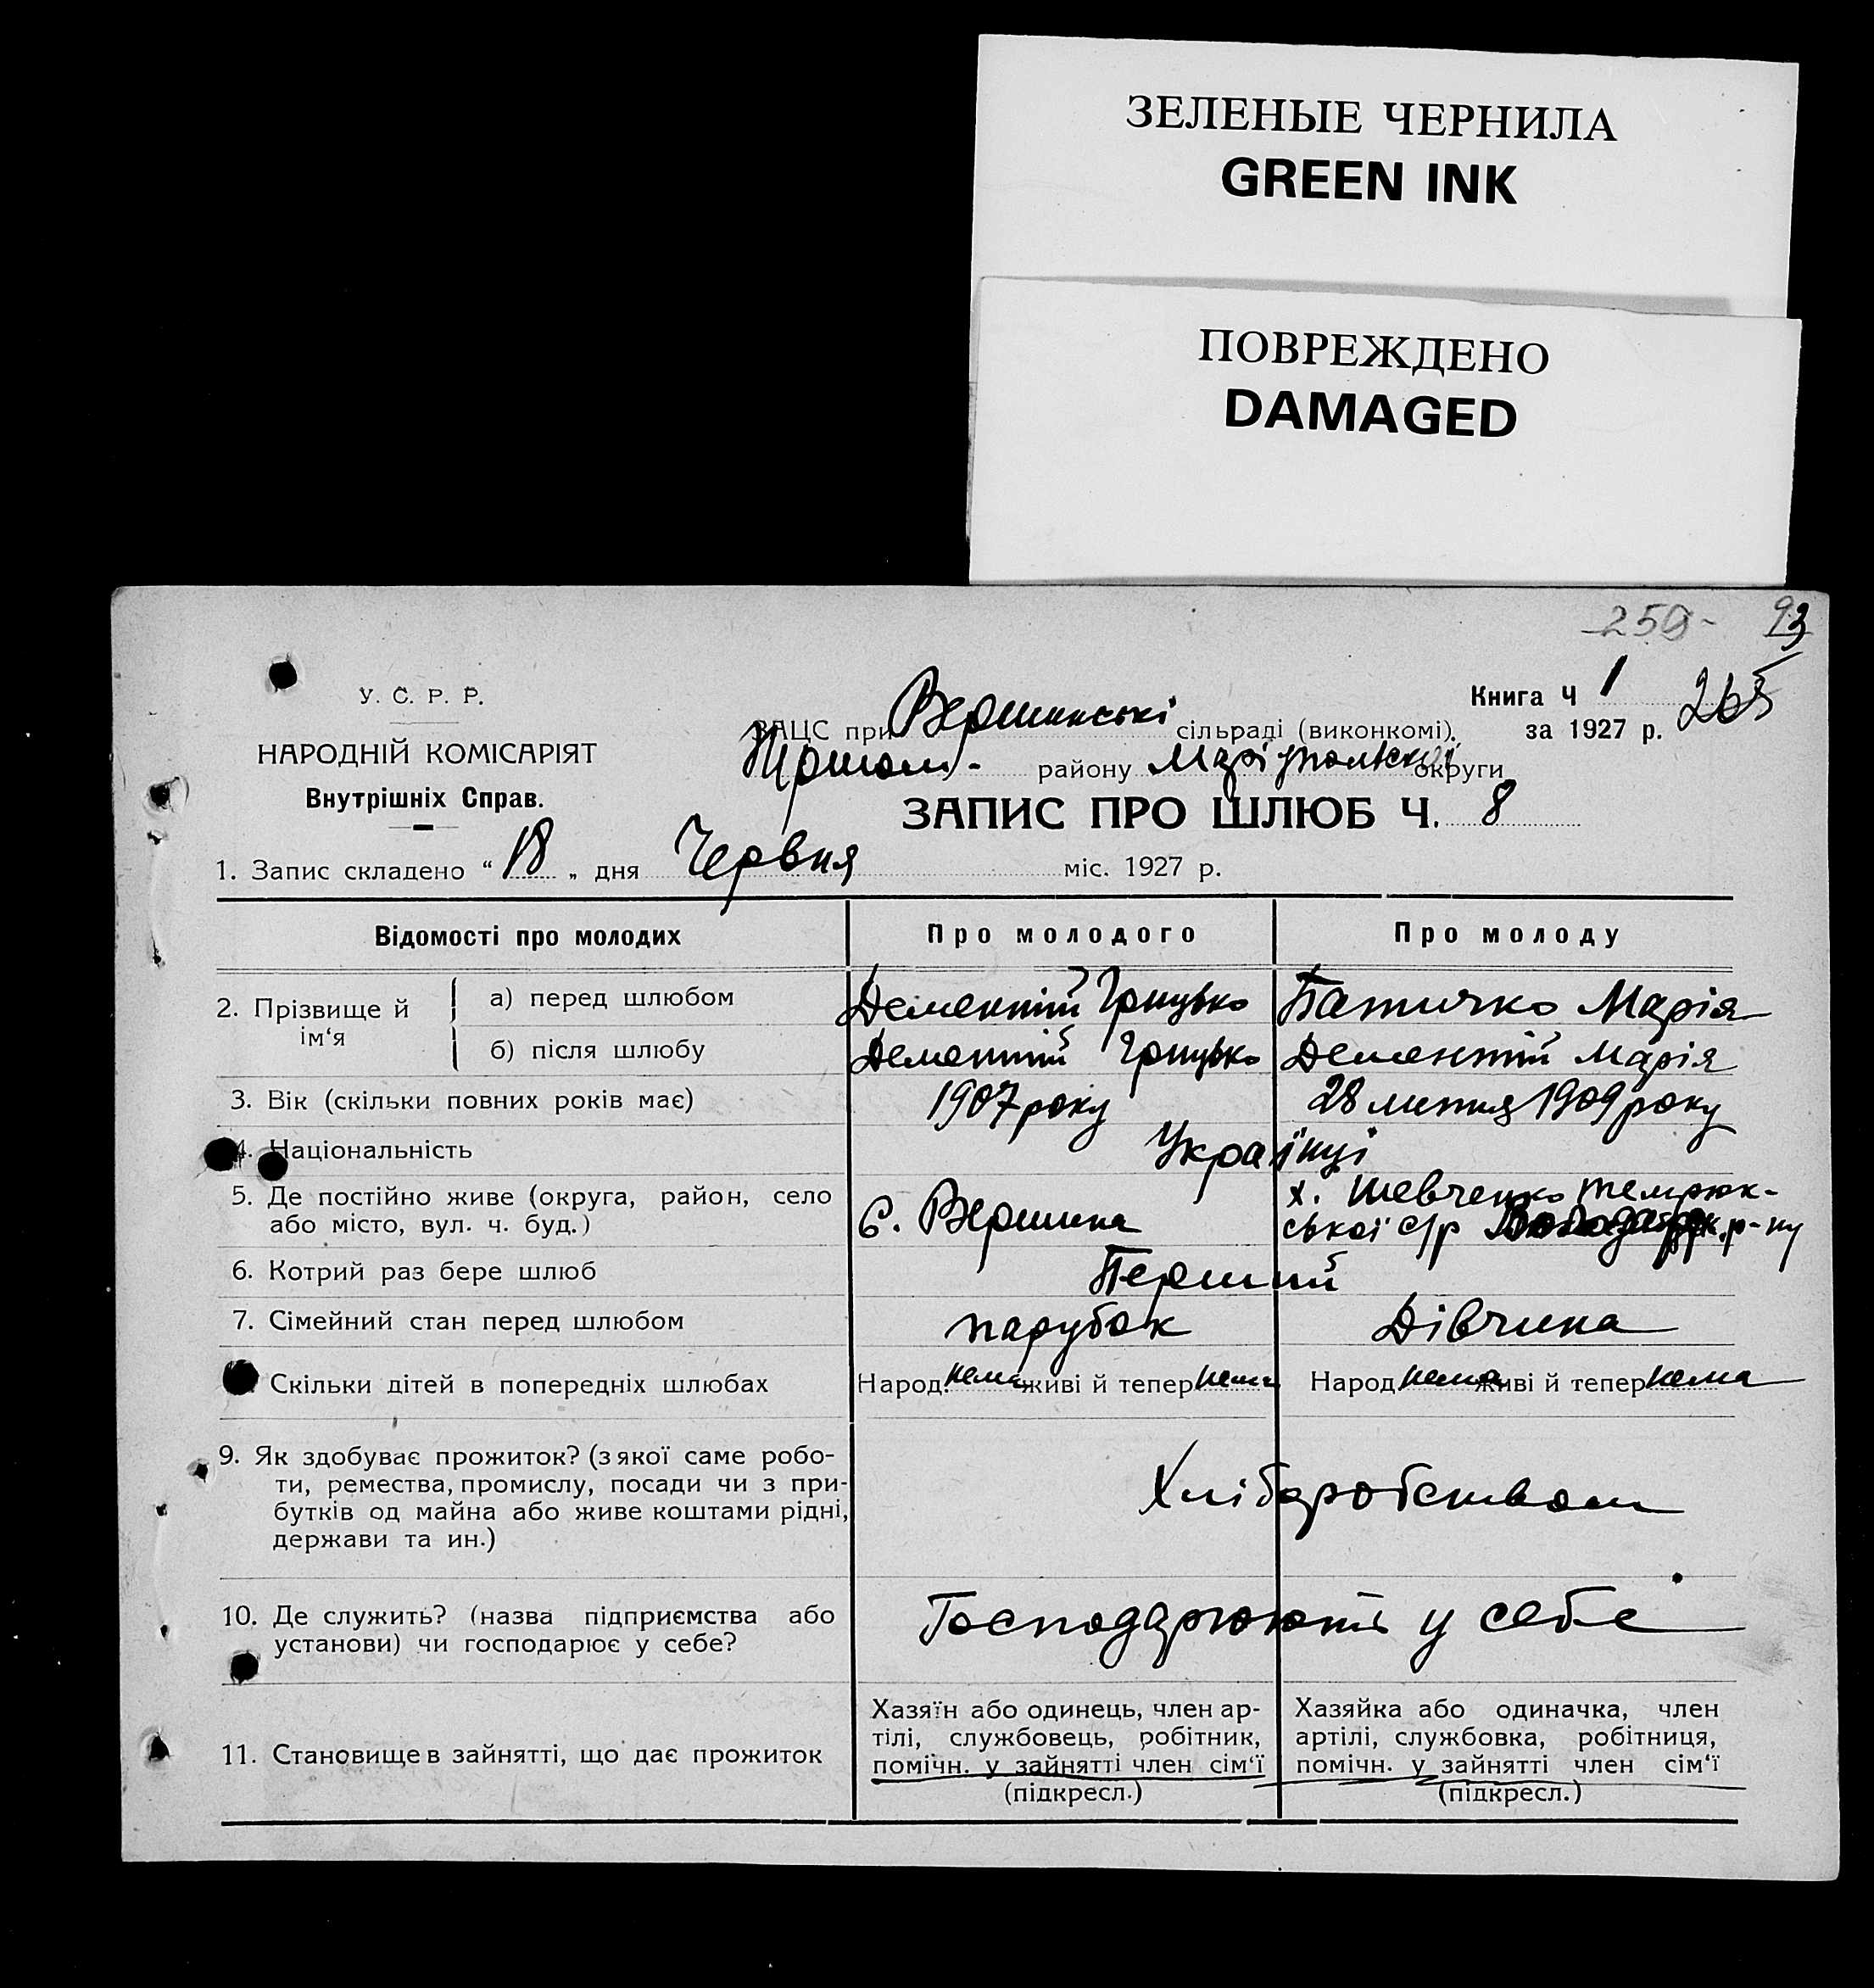 ЗЕЛЕНЫЕ ЧЕРНИЛА
GREEN INK
ПОВРЕЖДЕНО
DAMAGED
259- 93
У. С. Р. Р.
НАРОДНІЙ КОМІСАРІЯТ
Внутрішніх Справ.
Книга Ч 1
265
ЗАЦС при Вершинські сільраді (виконкомі). за 1927 р.
району Маріупольської округи
ЗАПИС ПРО ШЛЮБ Ч. 8
1. Запис складено “ 18 „ дня Червня міс. 1927 р.
Відомості про молодих Про молодого Про молоду
2. Прізвище й ім‘я а) перед шлюбом Дементій Грицько Батичко Марія
б) після шлюбу Дементій Грицько Дементій Марія
3. Вік (скільки повних років має) 1907 року 28 липня 1909 року
4. Національність Українці
5. Де постійно живе (округа, район, село х. Шевченко Темрюк-
або місто, вул. ч. буд.) С. Вершина ської с/р р-ну
6. Котрий раз бере шлюб Перший
7. Сімейний стан перед шлюбом парубок Дівчина
Скільки дітей в попередніх шлюбах Народ. нема живі й тепер нема Народ нема живі й тепер нема
9. Як здобуває прожиток? (з якої саме робо-
ти, ремества, промислу, посади чи з при-
бутків од майна або живе коштами рідні,
держави та ин.)
Хліборобством
10. Де служить? (назва підприємства або
установи) чи господарює у себе?
Господарюють у себе
11. Становище в зайнятті, що дає прожиток
Хазяїн або одинець, член ар-
тілі, службовець, робітник,
помічн. у зайнятті член сім‘ї
(підкресл.)
Хазяйка або одиначка, член
артілі, службовка, робітниця,
помічн. у зайнятті член сім‘ї
(підкресл.)